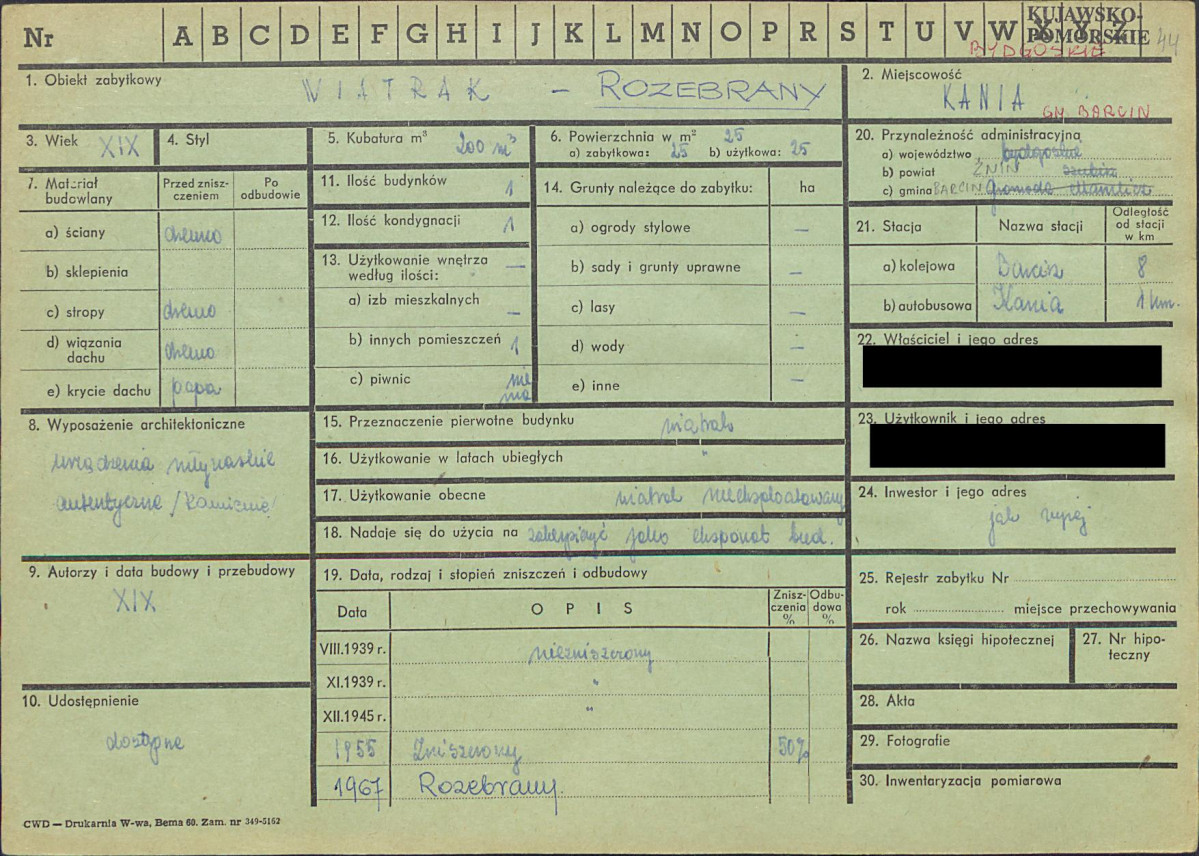 Nr A B C D E F G H I J K L M N O P R S T U V W X Y Z KUJAWSKO-
POMORSKIE 44
BYDGOSKIE
1. Obiekt zabytkowy WIATRAK - ROZEBRANY
2. Miejscowość
KANIA GM. BARCIN
3. Wiek XIX
4. Styl
5. Kubatura m³ 200 m³
6. Powierzchnia w m² 25
a) zabytkowa: 25 b) użytkowa: 25
7. Materiał budowlany
Przed znisz-
czeniem
Po
odbudowie
a) ściany drewno
b) sklepienia
c) stropy drewno
d) wiązania
dachu drewno
e) krycie dachu papa
8. Wyposażenie architektoniczne
urządzenia młynarskie
autentyczne /kamienne/
9. Autorzy i data budowy i przebudowy
XIX
10. Udostępnienie
dostępne
11. Ilość budynków 1
12. Ilość kondygnacji 1
13. Użytkowanie wnętrza
według ilości: —
a) izb mieszkalnych —
b) innych pomieszczeń 1
c) piwnic nie
ma
14. Grunty należące do zabytku: ha
a) ogrody stylowe —
b) sady i grunty uprawne —
c) lasy —
d) wody —
e) inne —
15. Przeznaczenie pierwotne budynku wiatrak
16. Użytkowanie w latach ubiegłych "
17. Użytkowanie obecne wiatrak nieeksploatowany
18. Nadaje się do użycia na zabezpieczyć jako eksponat bud.
19. Data, rodzaj i stopień zniszczeń i odbudowy
Data OPIS
Znisz-
czenia
%
Odbu-
dowa
%
VIII.1939 r. niezniszczony
XI.1939 r. "
XII.1945 r. "
1955 Zniszczony 50%
1967 Rozebrany.
20. Przynależność administracyjna
a) województwo bydgoskie
b) powiat ŻNIN szubin
c) gmina BARCIN Gromada Mamlicz
21. Stacja Nazwa stacji
Odległość
od stacji
w km
a) kolejowa Barcin 8
b) autobusowa Kania 1 km.
22. Właściciel i jego adres
23. Użytkownik i jego adres
24. Inwestor i jego adres
jak wyżej
25. Rejestr zabytku Nr
rok miejsce przechowywania
26. Nazwa księgi hipotecznej
27. Nr hipo-
teczny
28. Akta
29. Fotografie
30. Inwentaryzacja pomiarowa
CWD — Drukarnia W-wa, Bema 60. Zam. nr 349-5162